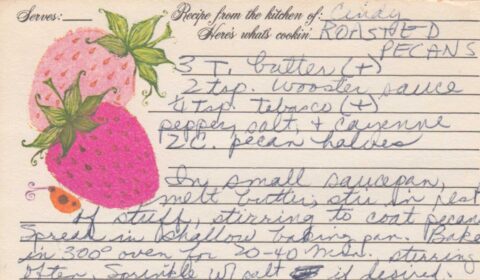 Serves:
Recipe from the kitchen of: Cindy
Here's what's cookin' ROASTED
PECANS
3 T. butter (+)
2 tsp. wooster sauce
4 tsp. tabasco (+)
pepper, salt, & cayenne
2 C. pecan halves
In small saucepan,
melt butter, stir in rest
of stuff, stirring to coat pecans
Spread in shallow baking pan. Bake
in 300° oven for 20-40 min., stirring
often. Sprinkle w/ salt if desired.